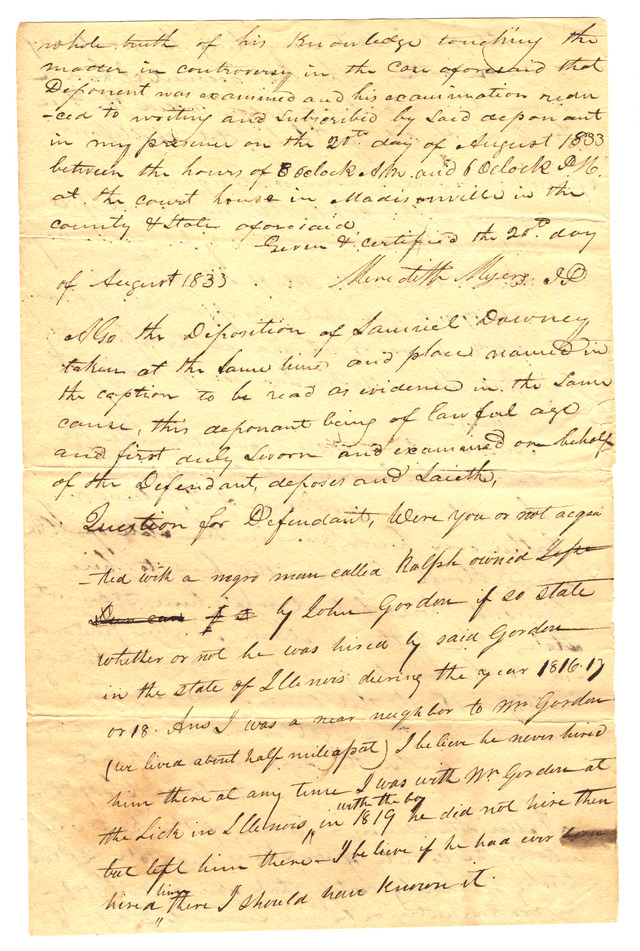 whole truth of his Knowledge touching the
matter in controversy in the Case aforesaid that
Deponent was examined and his examination redu
-ced to writing and subscribed by said deponant
in my presence on the 20th day of August 1833
between the hours of 8 Oclock A.M. and 6 Oclock P.M.
at the court house in Madisonville in the
county & State aforesaid.
Given & certified the 20th day
of August 1833 Meredith Myers JP
Also the Diposition of Samuel Downey
taken at the Same time and place named in
the caption to be read as evidence in the Same
cause, this deponant being of lawful age
and first duly Sworn and examined on behalf
of the Defendant, deposes and Saieth,
Question for Defendant, Were You or not acqua
-ted with a negro man called Ralph owned
by John Gordon if so state
whether or not he was hired by said Gordon
in the state of Illenois during the year 1816.17
or 18. Ans I was a near neighbor to Mr Gordon
(we lived about half mile apat) I believe he never hired
him there at any time I was with Mr Gordon at
the Lick in Illenois with the boy in 1819 he did not hire then
but left him there - I believe if he had ever
hired him there I should have known it.